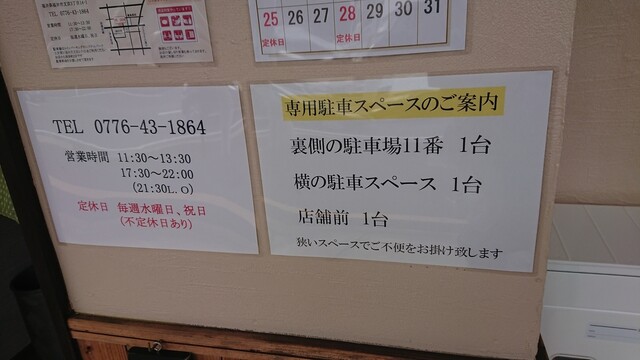 TEL 0776-43-1864
25 26 27 28 29 30 31
定休日 定休日
TEL 0776-43-1864
営業時間 11:30～13:30
17:30～22:00
(21:30L.O)
定休日 毎週水曜日、祝日
(不定休日あり)
専用駐車スペースのご案内
裏側の駐車場11番 1台
横の駐車スペース 1台
店舗前 1台
狭いスペースでご不便をお掛け致します